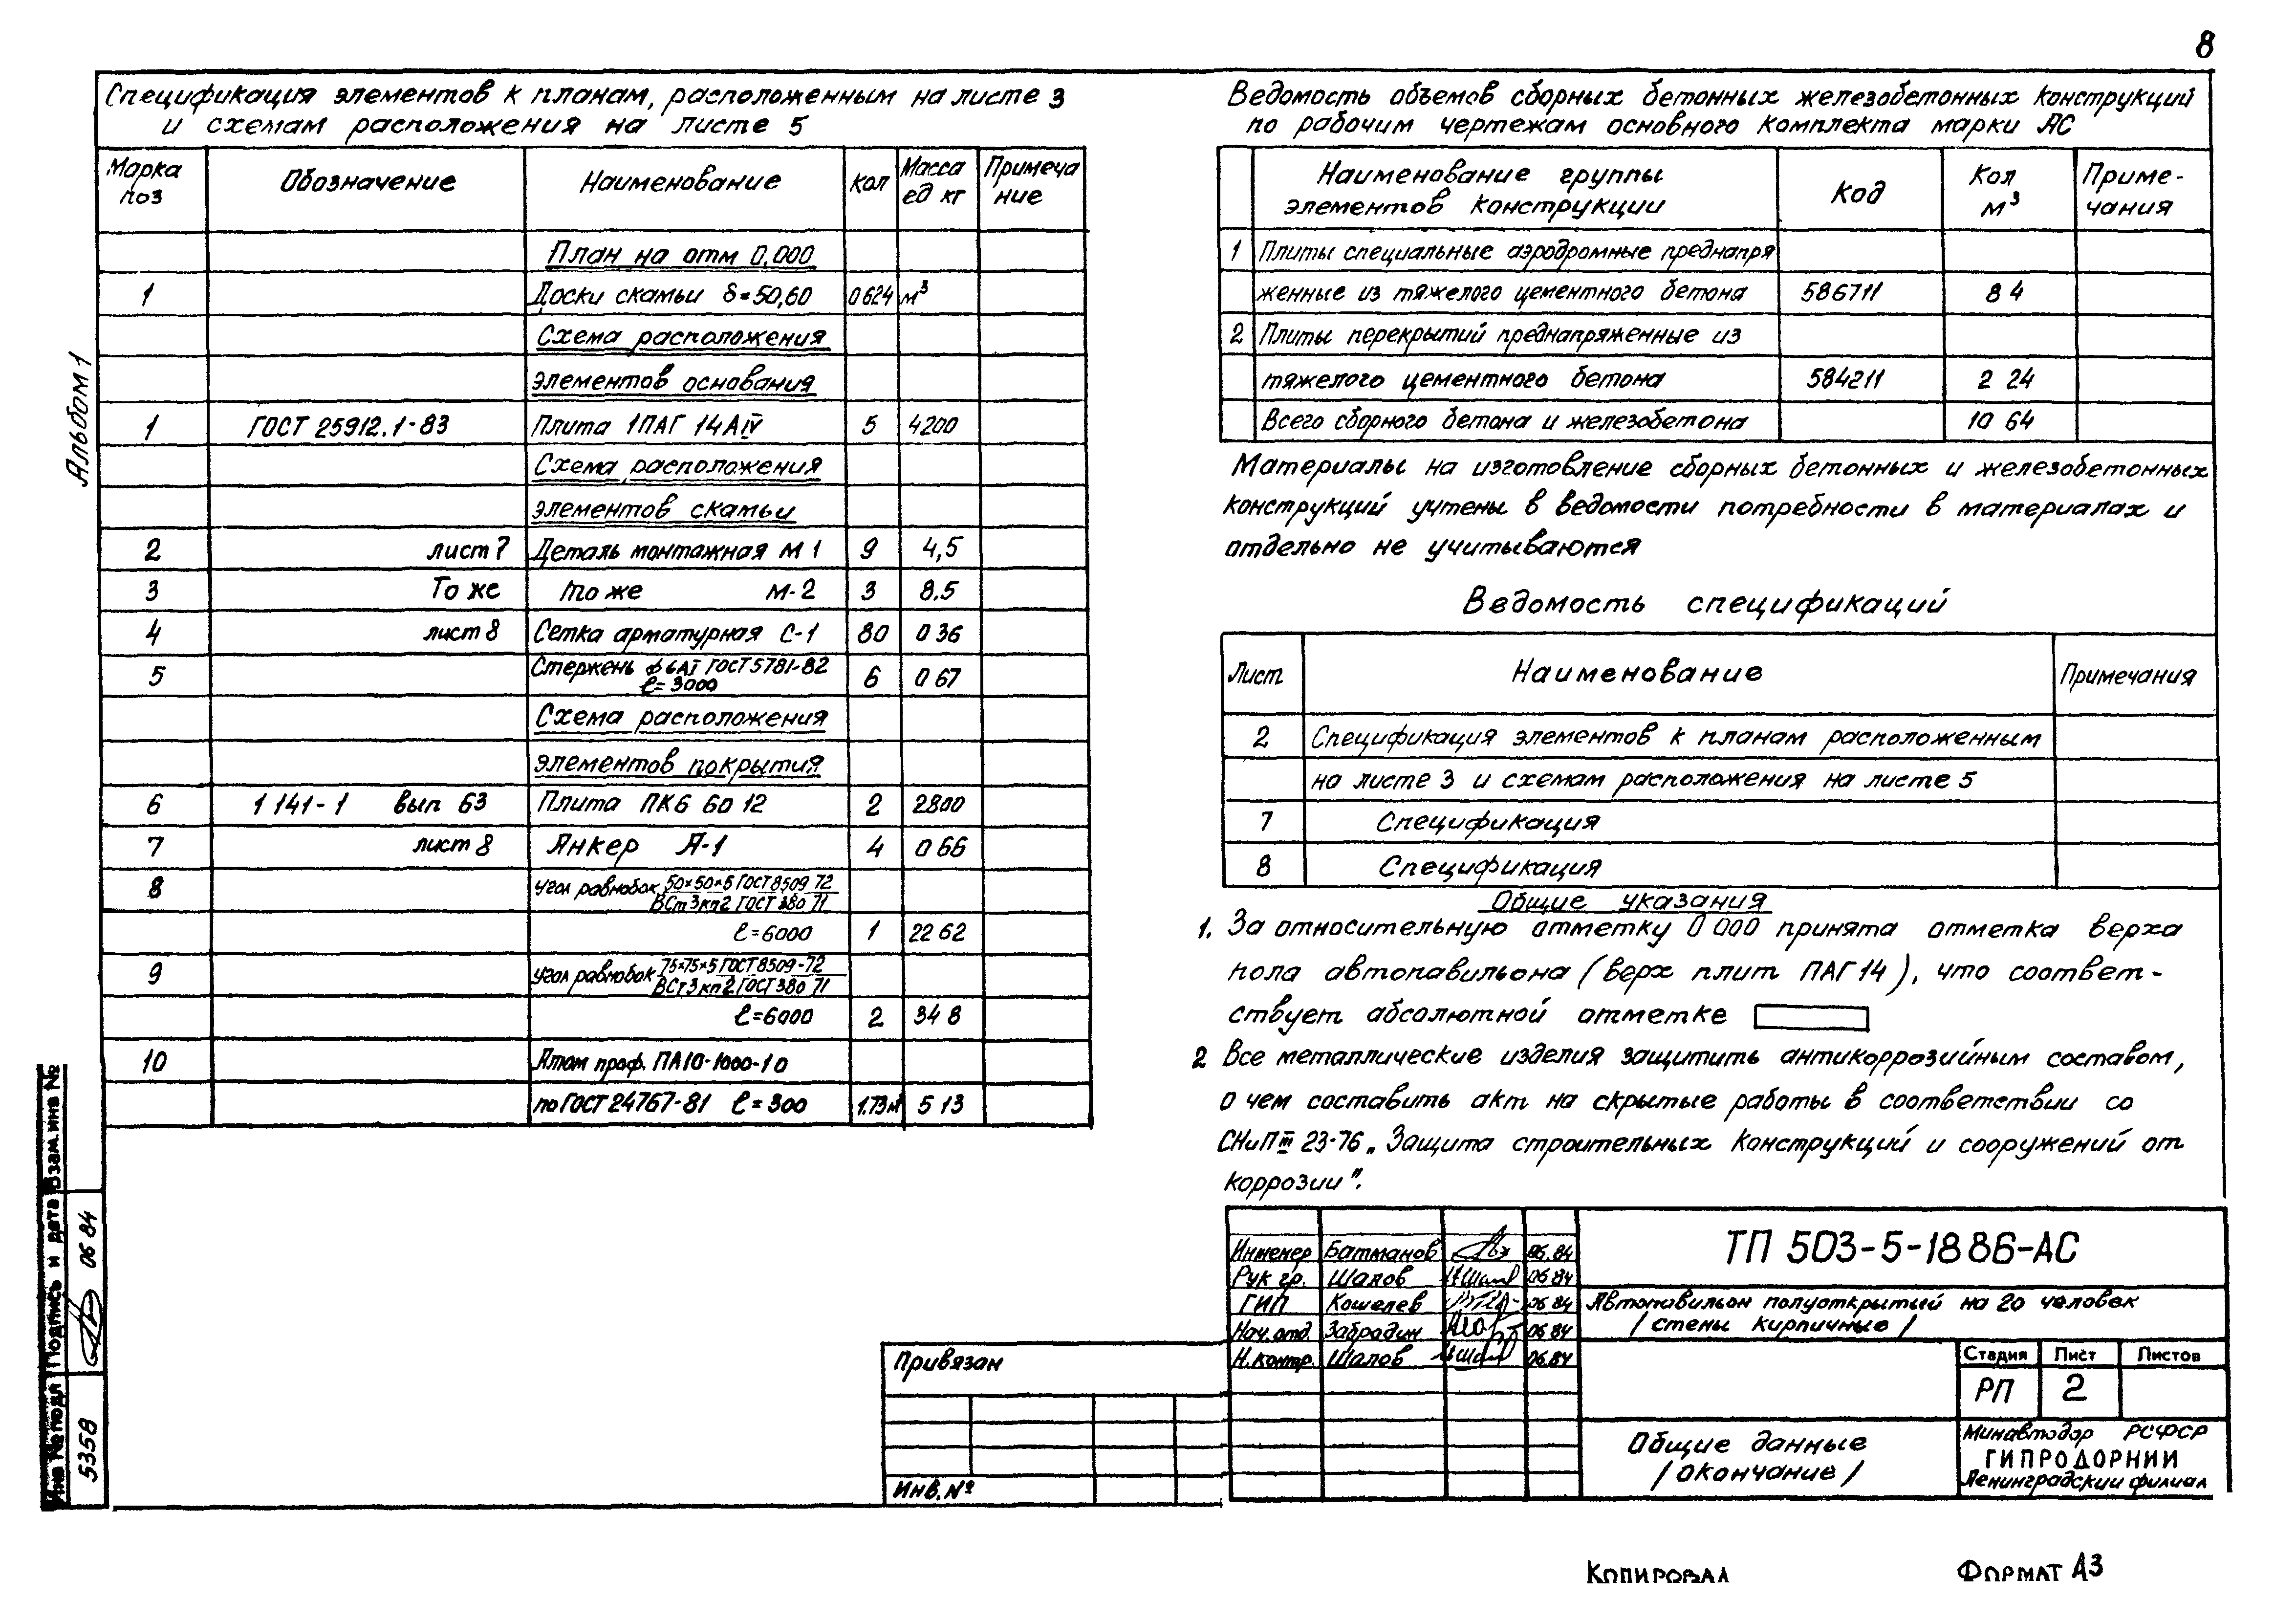 8
Спецификация элементов к планам, расположенным на листе 3
и схемам расположения на листе 5
Марка поз Обозначение Наименование Кол Масса ед кг Примечание
План на отм 0,000
1 Доски скамьи δ=50,60 0624 м³
Схема расположения
элементов основания
1 ГОСТ 25912.1-83 Плита 1ПАГ 14АIV 5 4200
Схема расположения
элементов скамьи
2 лист 7 Деталь монтажная М 1 9 4,5
3 То же то же м-2 3 8.5
4 лист 8 Сетка арматурная С-1 80 0 36
5 Стержень ф 6АI ГОСТ 5781-82 ℓ=3000 6 0 67
Схема расположения
элементов покрытия
6 1 141-1 вып 63 Плита ПК6 60 12 2 2800
7 лист 8 Анкер А-1 4 0 66
8 Угол равнобок 50×50×5 ГОСТ 8509 72
ВСт3кп2 ГОСТ 380 71
ℓ=6000 1 22 62
9 Угол равнобок 75×75×5 ГОСТ 8509-72
ВСт3кп2 ГОСТ 380 71
ℓ=6000 2 34 8
10 Алюм проф. ПА10-1000-1 0
по ГОСТ 24767-81 ℓ=300 1.73м² 5 13
Ведомость объемов сборных бетонных железобетонных конструкций
по рабочим чертежам основного комплекта марки АС
Наименование группы элементов конструкции Код Кол м³ Приме-чания
1 Плиты специальные аэродромные преднапря
женные из тяжелого цементного бетона 586711 8 4
2 Плиты перекрытий преднапряженные из
тяжелого цементного бетона 584211 2 24
Всего сборного бетона и железобетона 10 64
Материалы на изготовление сборных бетонных и железобетонных
конструкций учтены в ведомости потребности в материалах и
отдельно не учитываются
Ведомость спецификаций
Лист Наименование Примечания
2 Спецификация элементов к планам расположенным
на листе 3 и схемам расположения на листе 5
7 Спецификация
8 Спецификация
Общие указания
1. За относительную отметку 0 000 принята отметка верха
пола автопавильона (верх плит ПАГ 14), что соответ-
ствует абсолютной отметке
2 Все металлические изделия защитить антикоррозийным составом,
о чем составить акт на скрытые работы в соответствии со
СНиП III 23-76 „Защита строительных конструкций и сооружений от
коррозии".
Инженер Батманов 06.84
Рук гр. Шалов 06 84
ГИП Кошелев 06 84
Нач. отд. Забродин 06 84
Н.контр. Шалов 06.84
ТП 503-5-18 86-АС
Автопавильон полуоткрытый на 20 человек
/ стены кирпичные /
Стадия Лист Листов
РП 2
Общие данные
/ окончание /
Минавтодор РСФСР
ГИПРОДОРНИИ
Ленинградский филиал
Привязан
Инв. №
Альбом 1
Взам. инв №
Подпись и дата 06 84
Инв № подл 5358
Копировал Формат А3